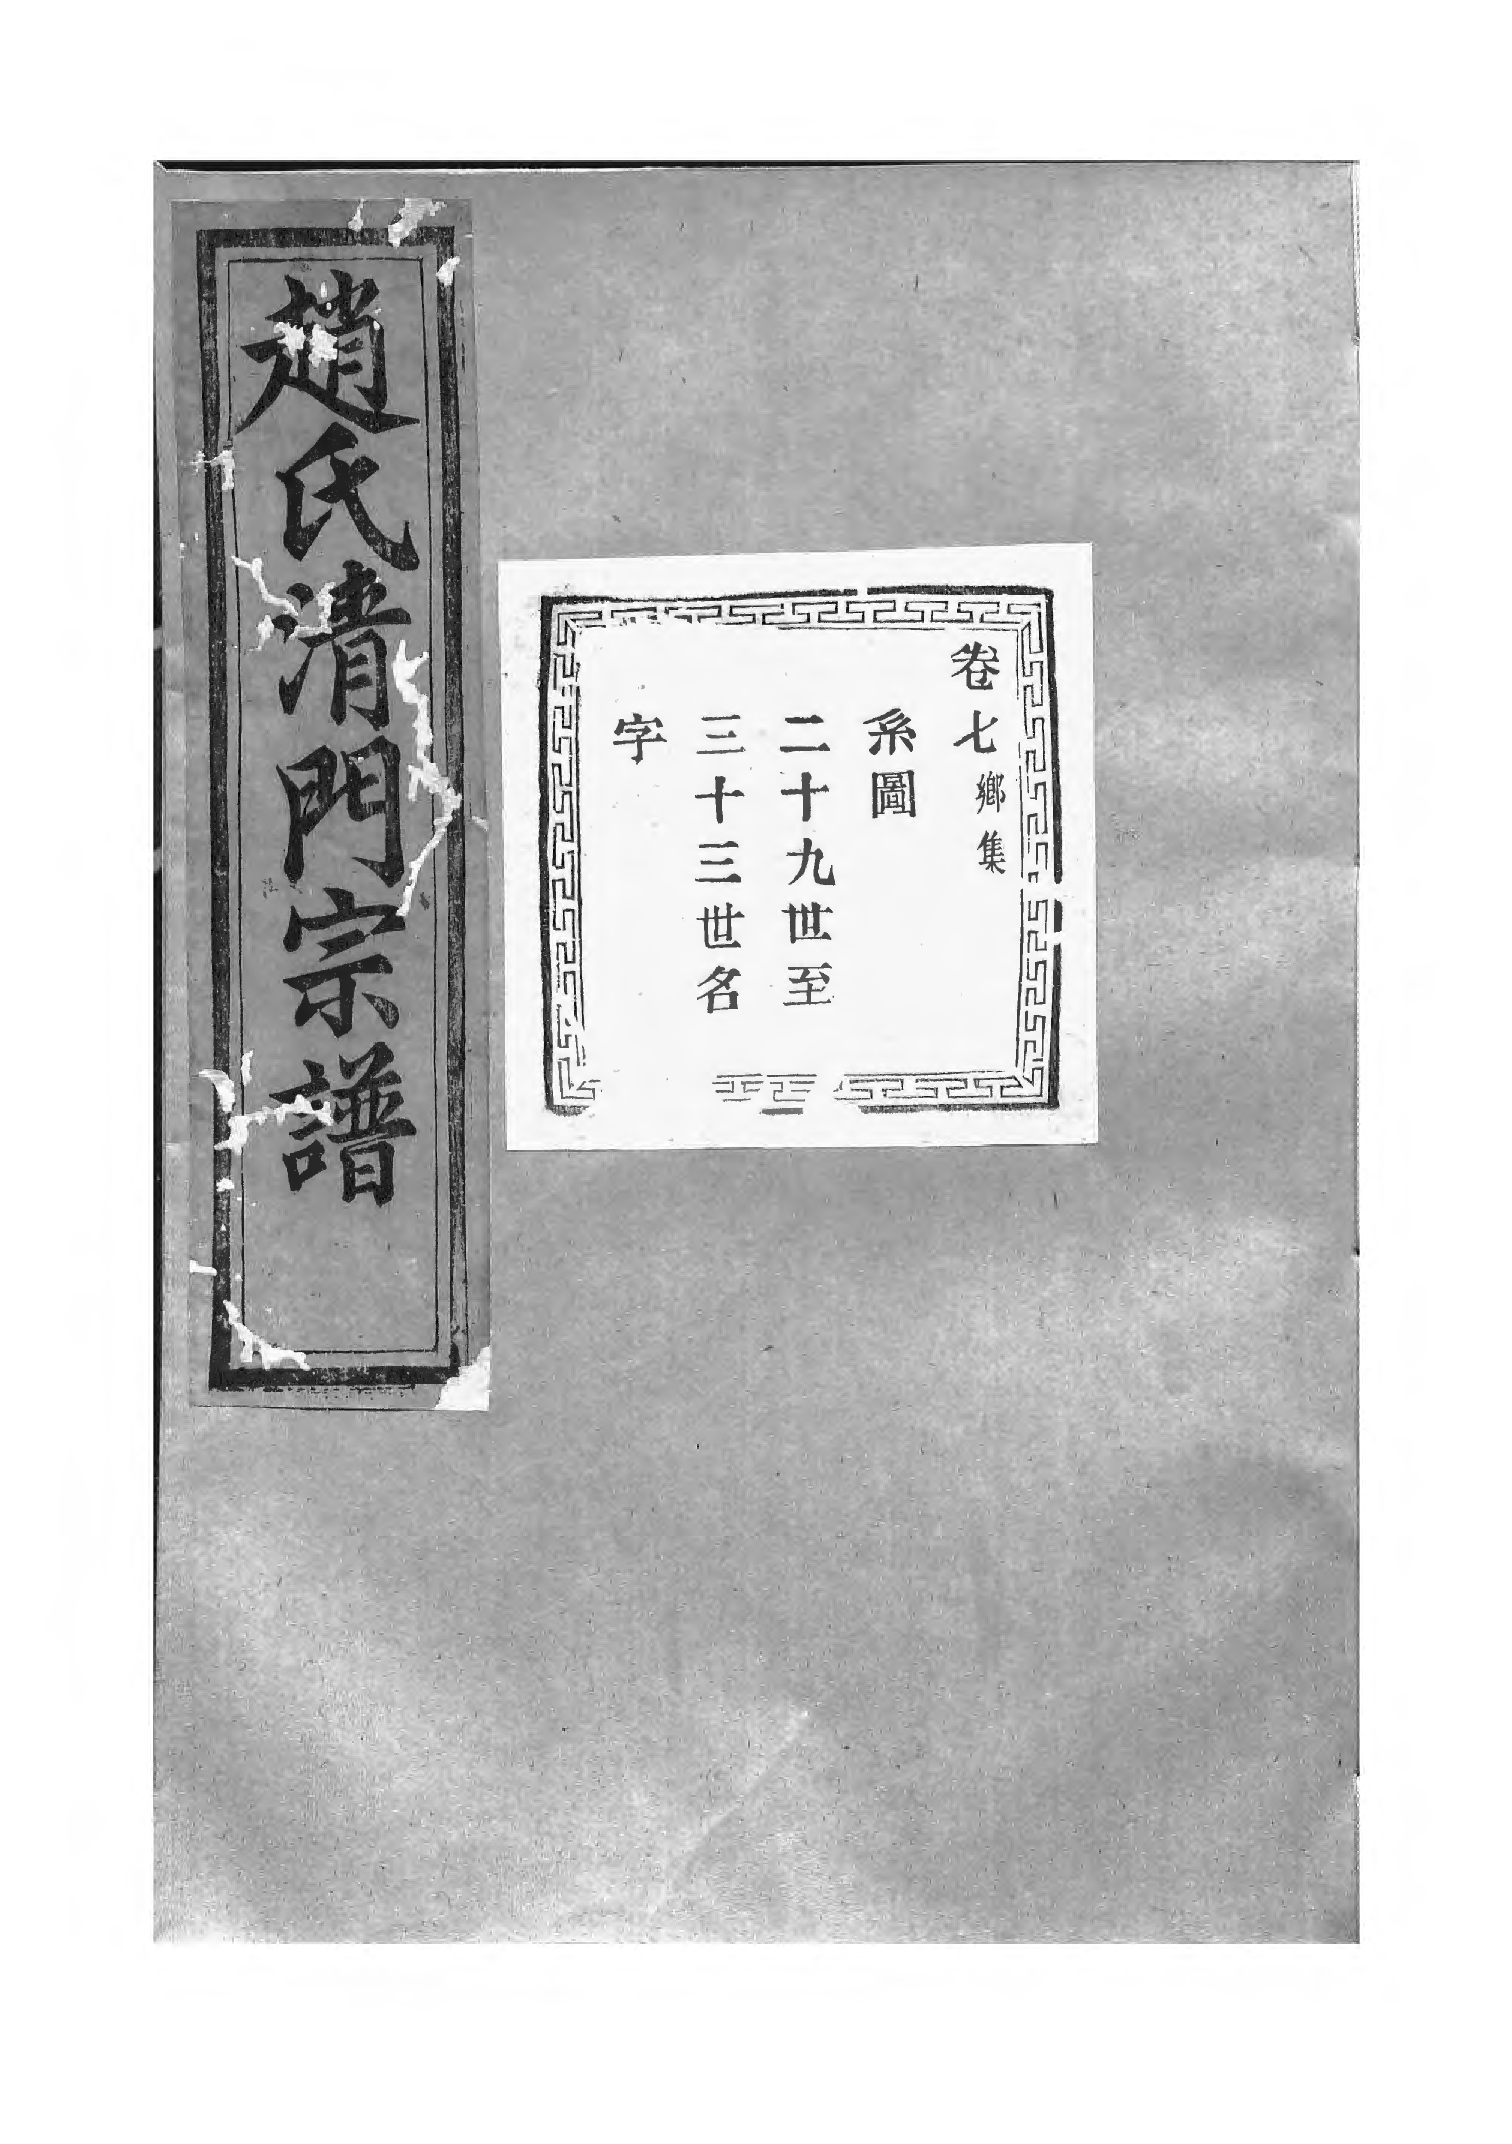 趙氏清門宗譜
卷七鄉集
系圖
二十九世至
三十三世名
字